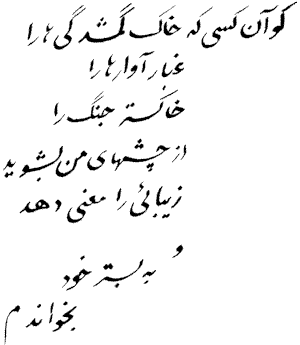 کو آن کسی که خاک گمشدگی ها را
غبار آوارها را
خاکستر جنگ را
از چشمهای من بشوید
زیبائی را معنی دهد
و
به بستر خود
بخواندم